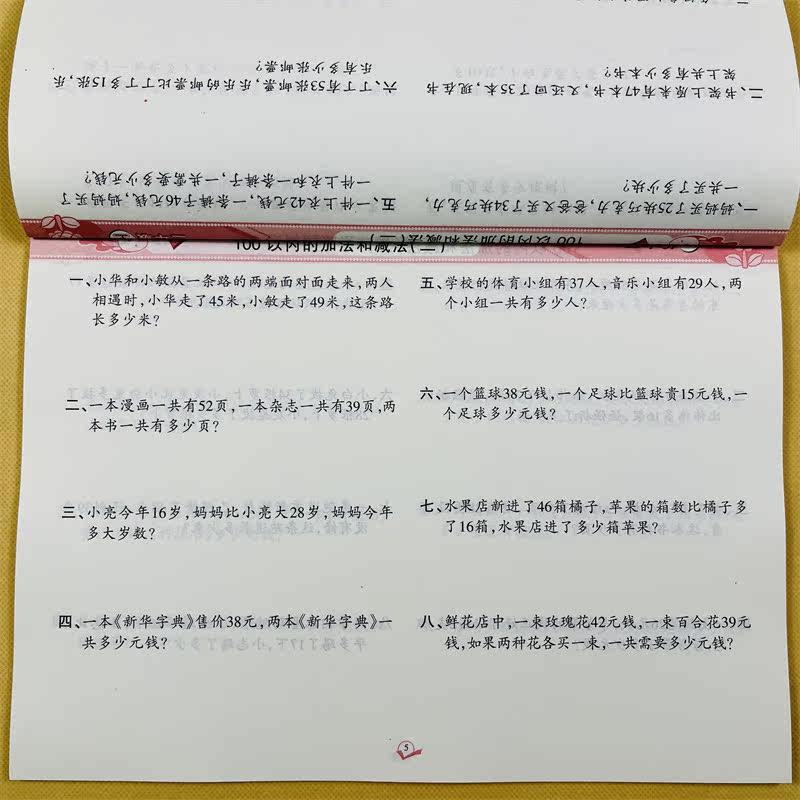 六、丁丁有53张邮票，乐乐的邮票比丁丁多15张，乐
乐有多少张邮票？
二、书架上原来有47本书，又还回了35本，现在书
架上共有多少本书？
五、一件上衣42元钱，一条裤子46元钱，妈妈买了
一件上衣和一条裤子，一共需要多少元钱？
一、妈妈买了25块巧克力，爸爸又买了34块巧克力，
一共买了多少块？
100以内的加法和减法(二)
100以内的加法和减法(二)
一、小华和小敏从一条路的两端面对面走来，两人
相遇时，小华走了45米，小敏走了49米，这条路
长多少米？
二、一本漫画一共有52页，一本杂志一共有39页，两
本书一共有多少页？
三、小亮今年16岁，妈妈比小亮大28岁，妈妈今年
多大岁数？
四、一本《新华字典》售价38元，两本《新华字典》一
共多少元钱？
五、学校的体育小组有37人，音乐小组有29人，两
个小组一共有多少人？
六、一个篮球38元钱，一个足球比篮球贵15元钱，一
个足球多少元钱？
七、水果店新进了46箱橘子，苹果的箱数比橘子多
了16箱，水果店进了多少箱苹果？
八、鲜花店中，一束玫瑰花42元钱，一束百合花39元
钱，如果两种花各买一束，一共需要多少元钱？
5